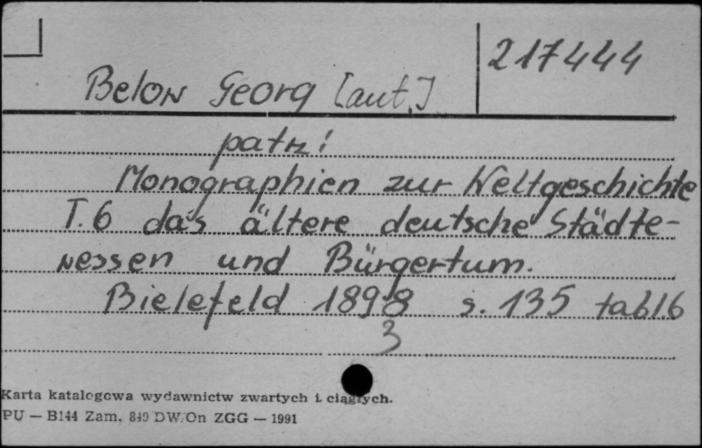 217444
Below Georg [aut.]
patrz:
Monographien zur Weltgeschichte
T.6 das ältere deutsche Städte-
wessen und Bürgertum.
Bielefeld 1898 s. 135 tabl6
3
Karta katalogowa wydawnictw zwartych i ciągłych.
PU — B144 Zam. 849 DW/On ZGG — 1991